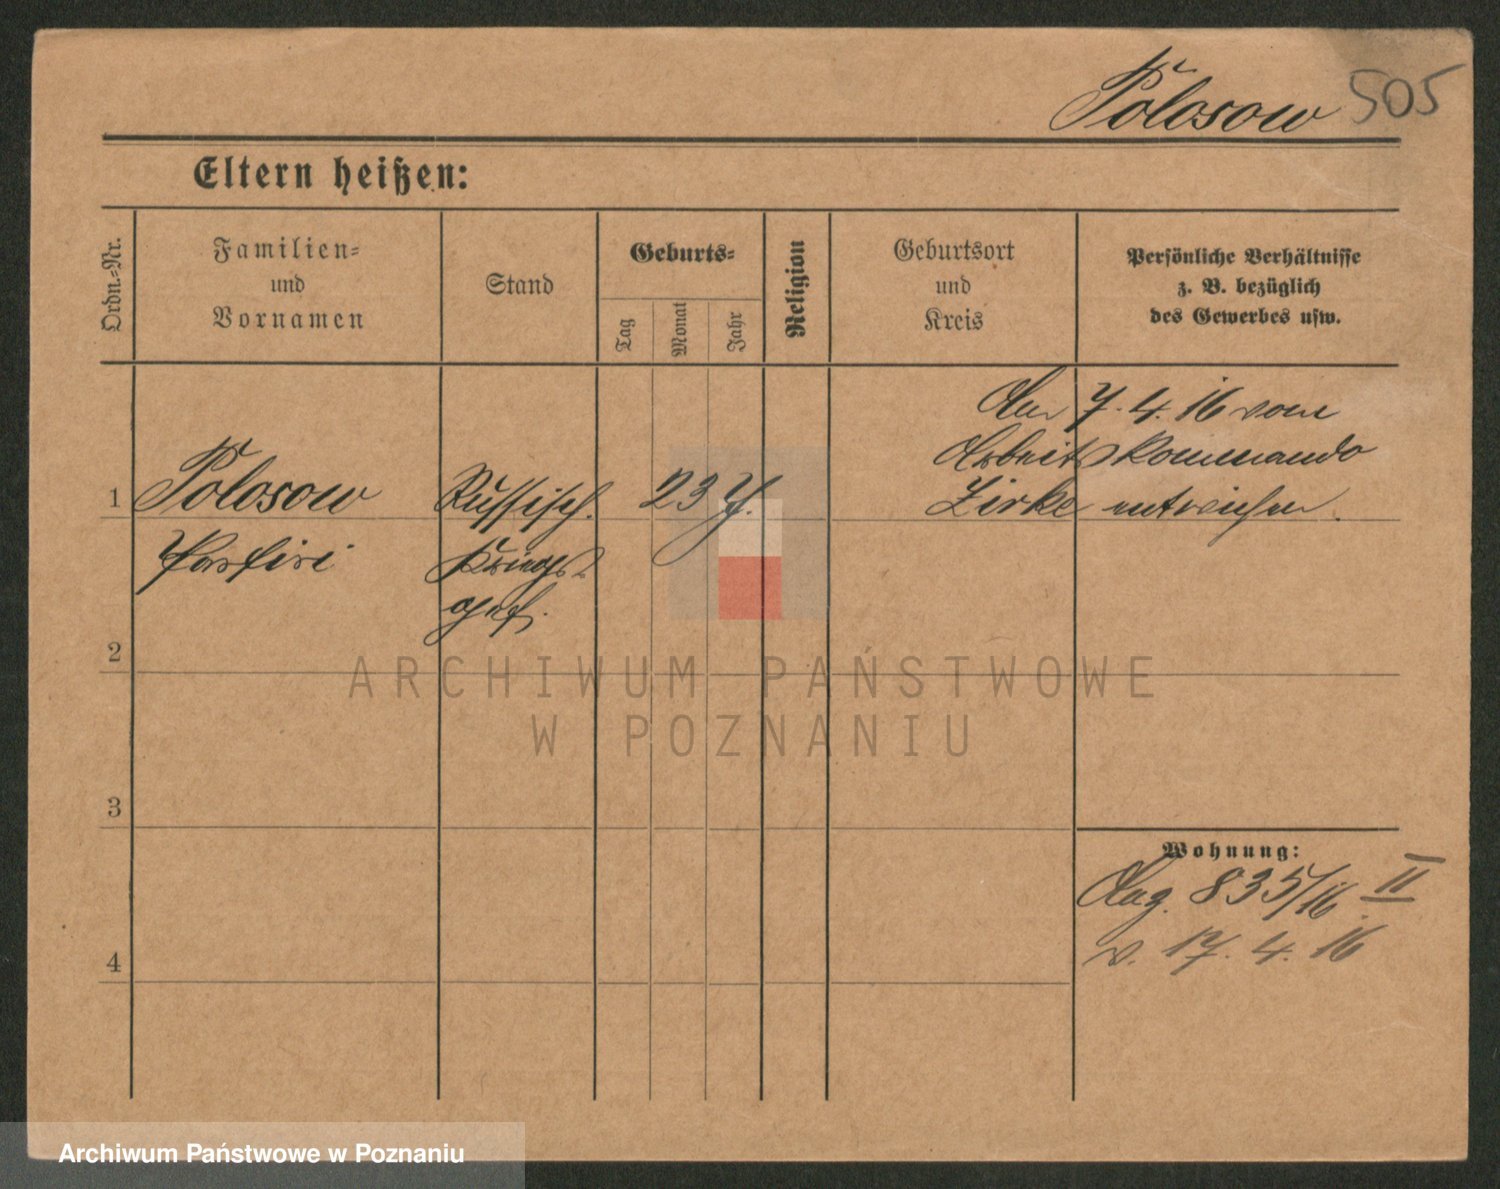 Polosow 505
Eltern heißen:
Ordn.=Nr.
Familien=
und
Vornamen
Stand
Geburts=
Tag
Monat
Jahr
Religion
Geburtsort
und
Kreis
Persönliche Verhältnisse
z. B. bezüglich
des Gewerbes usw.
Am 7. 4. 16 vom
Arbeitskommando
Zirke entwichen.
1 Polosow Russisch. 23 J.
Porfiri Kriegs=
gef.
2
3
4
Wohnung:
Tag. 835/16 II
v. 17. 4. 16
ARCHIWUM PAŃSTWOWE
W POZNANIU
Archiwum Państwowe w Poznaniu